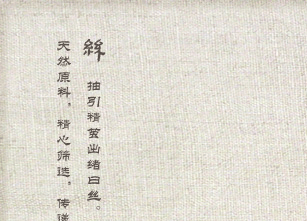 絲
抽引精茧出绪曰丝。
天然原料，精心筛选，传